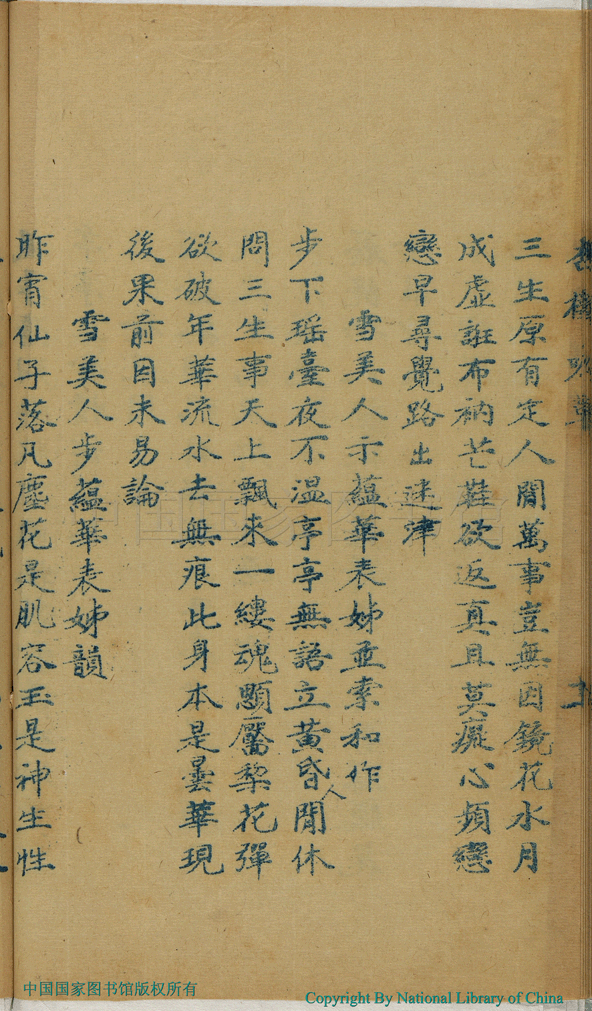 三生原有定人間萬事豈無因鏡花水月
成虛誑布衲芒鞋欲返真且莫癡心頻戀
戀早尋覺路出迷津
雪美人示蘊華表姊並索和作
步下瑤臺夜不温亭亭無語立黃昏人間休
問三生事天上飄來一縷魂顋靨梨花彈
欲破年華流水去無痕此身本是曇華現
後果前因未易論
雪美人步蘊華表姊韻
昨宵仙子落凡塵花是肌容玉是神生性
中国国家图书馆版权所有
Copyright By National Library of China